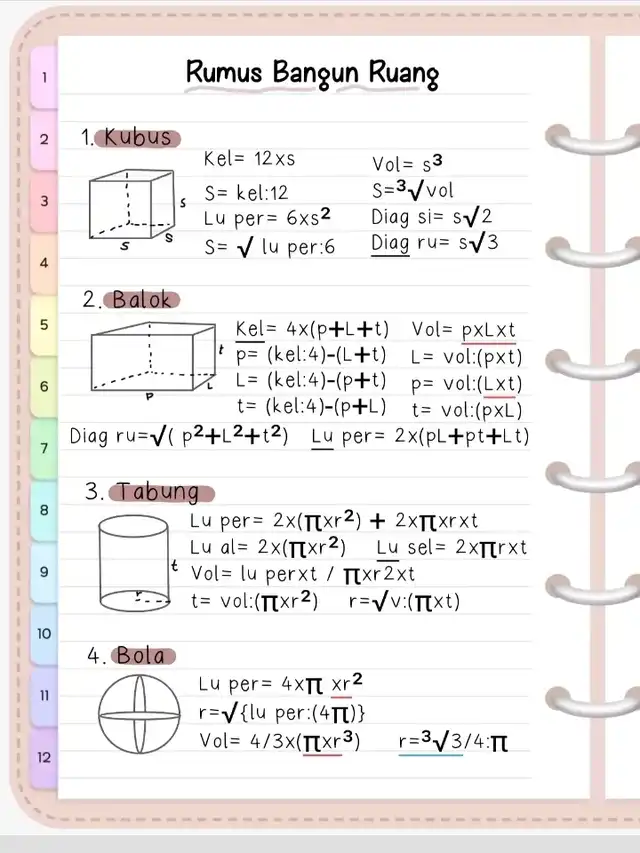 Rumus Bangun Ruang
1. Kubus
Kel= 12xs
Vol= s³
S= kel:12
S=³√vol
Lu per= 6xs²
Diag si= s√2
S= √ lu per:6
Diag ru= s√3
s
s
s
2. Balok
Kel= 4x(p+L+t)
Vol= pxLxt
p= (kel:4)-(L+t)
L= vol:(pxt)
L= (kel:4)-(p+t)
p= vol:(Lxt)
t= (kel:4)-(p+L)
t= vol:(pxL)
t
L
P
Diag ru=√( p²+L²+t²)
Lu per= 2x(pL+pt+Lt)
3. Tabung
Lu per= 2x(πxr²) + 2xπxrxt
Lu al= 2x(πxr²)
Lu sel= 2xπrxt
Vol= lu perxt / πxr2xt
t= vol:(πxr²)
r=√v:(πxt)
t
r
4. Bola
Lu per= 4xπ xr²
r=√{lu per:(4π)}
Vol= 4/3x(πxr³)
r=³√3/4:π
1
2
3
4
5
6
7
8
9
10
11
12